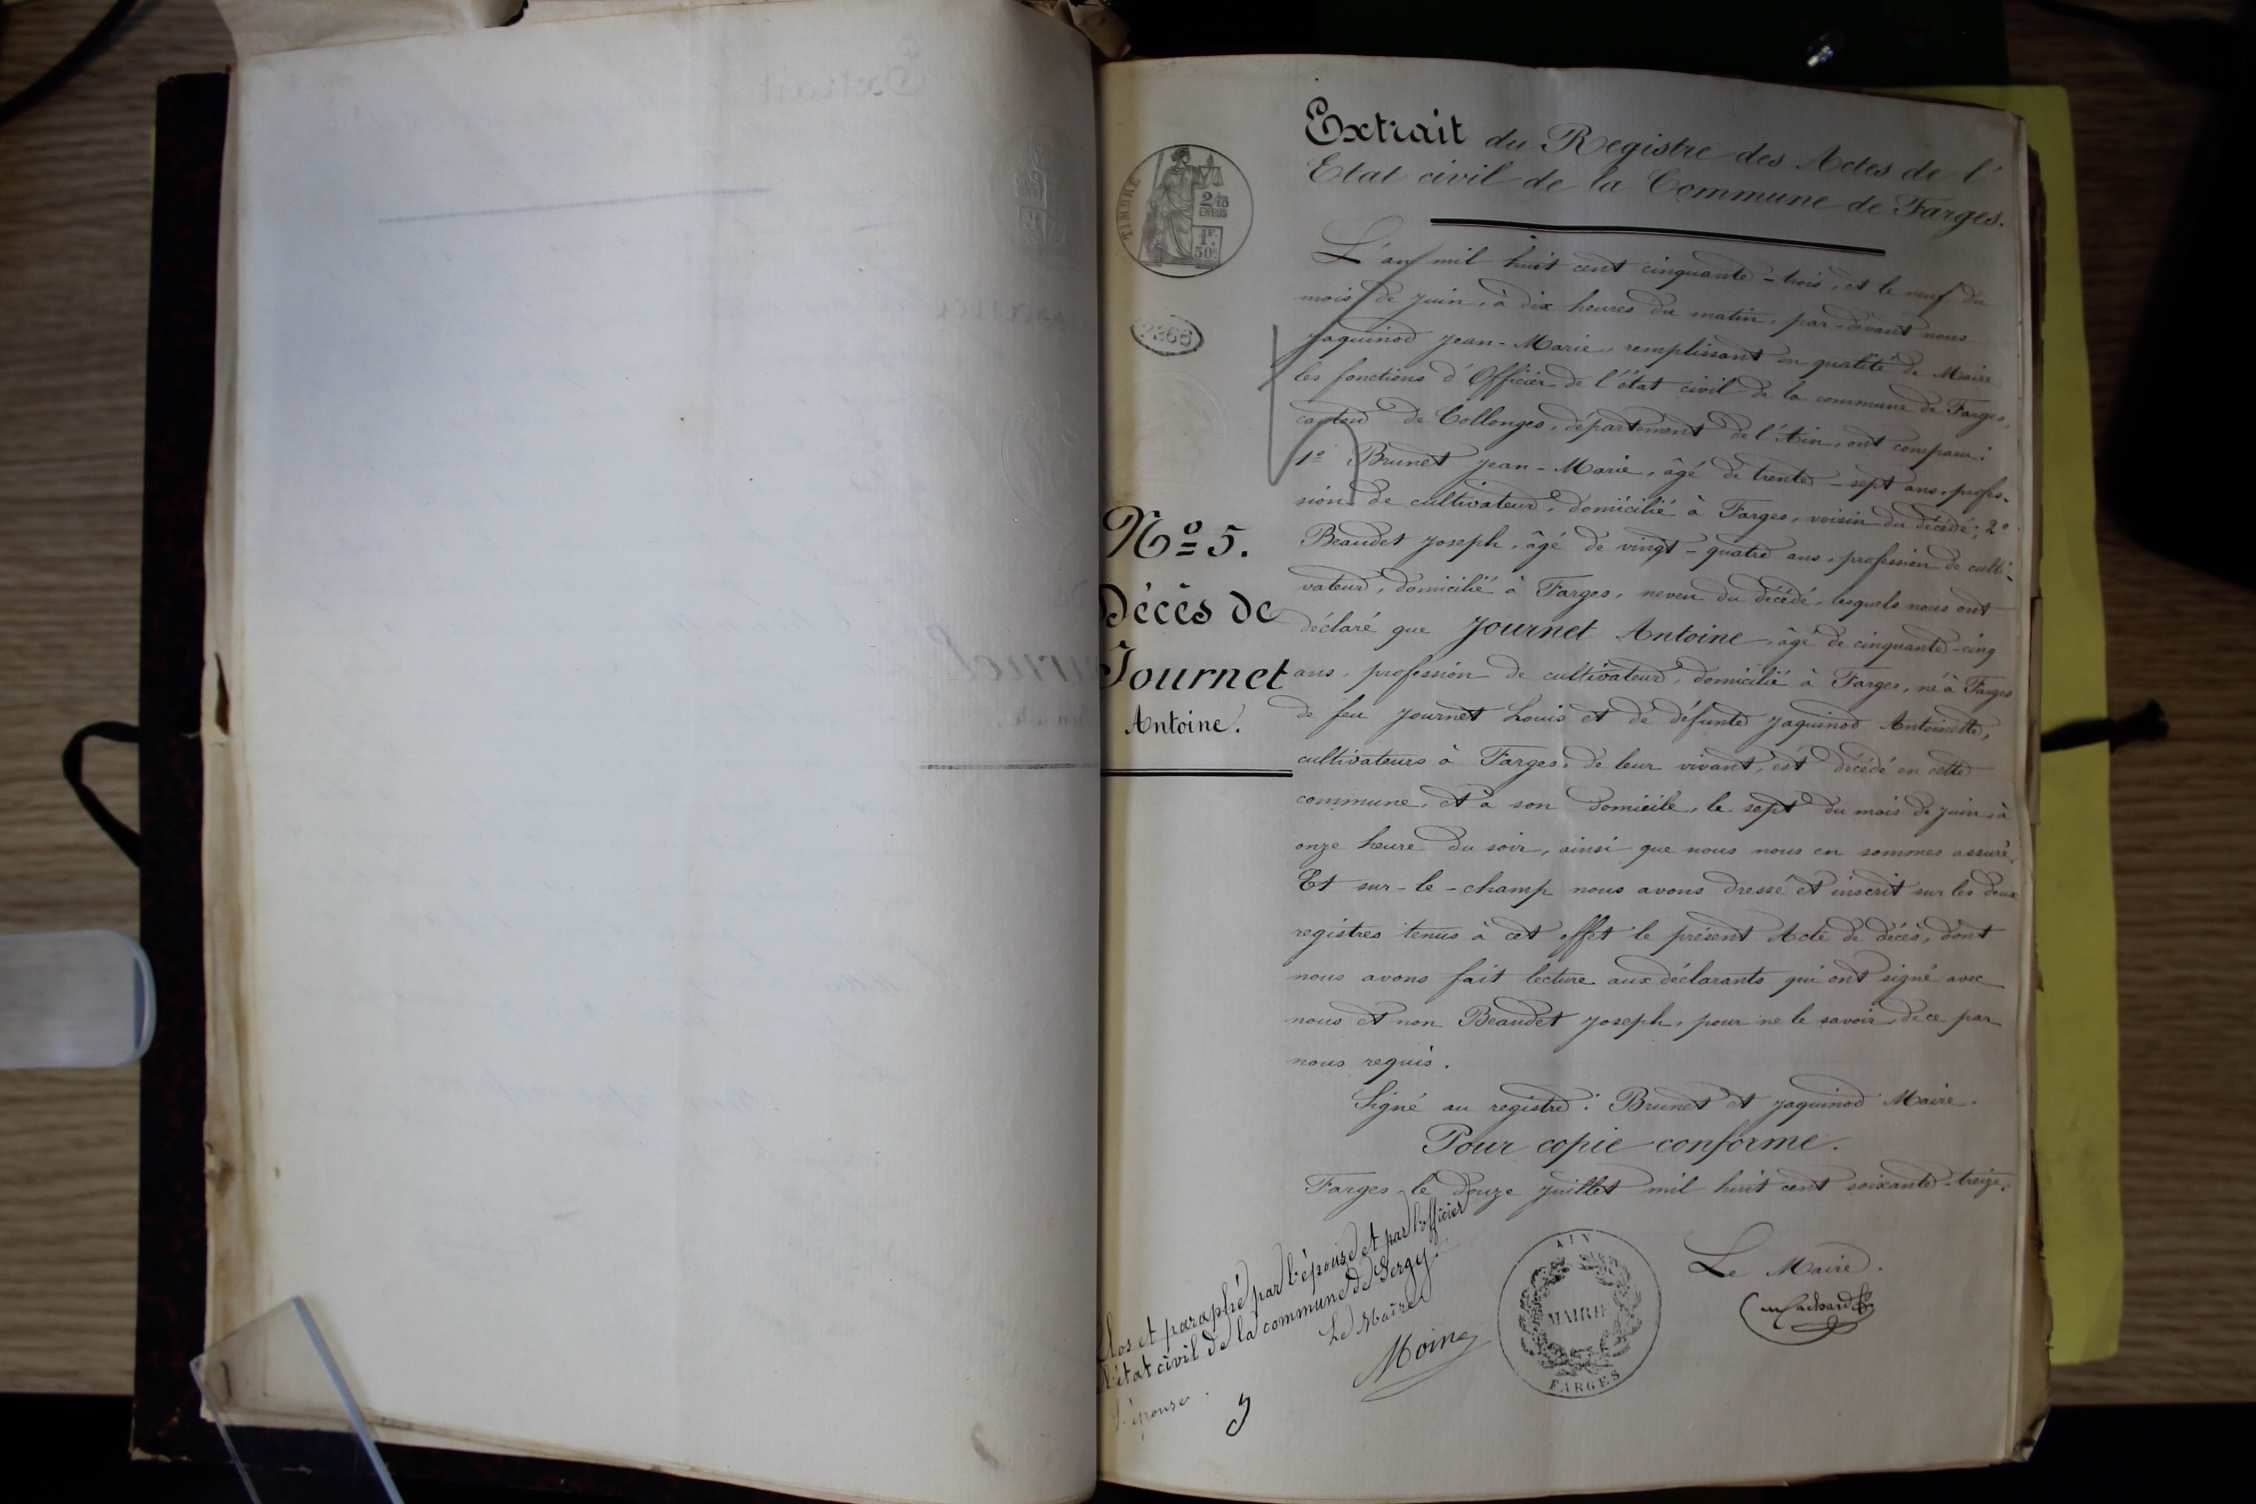 Extrait du Registre des Actes de l'
Etat civil de la Commune de Farges.
TIMBRE
2/10
EN SUS
1F.
50c.
2266
L'an mil huit cent cinquante-trois, et le neuf du
mois de juin, à dix heures du matin, par-devant nous
Jaquinod Jean-Marie, remplissant en qualité de Maire
les fonctions d'Officier de l'état civil de la commune de Farges,
canton de Collonges, département de l'Ain, ont comparu:
1º Brunet Jean-Marie, âgé de trente-sept ans, profes-
sion de cultivateur, domicilié à Farges, voisin du décédé; 2º
Beaudet Joseph, âgé de vingt-quatre ans, profession de culti-
vateur, domicilié à Farges, neveu du décédé, lesquels nous ont
déclaré que Journet Antoine, âgé de cinquante-cinq
ans, profession de cultivateur, domicilié à Farges, né à Farges
de feu Journet Louis et de défunte Jaquinod Antoinette,
cultivateurs à Farges, de leur vivant, est décédé en cette
commune, et à son domicile, le sept du mois de juin, à
onze heure du soir, ainsi que nous nous en sommes assuré.
Et sur-le-champ nous avons dressé et inscrit sur les deux
registres tenus à cet effet le présent Acte de décès, dont
nous avons fait lecture aux déclarants qui ont signé avec
nous et non Beaudet Joseph, pour ne le savoir, de ce par
nous requis.
Signé au registre: Brunet et Jaquinod Maire.
Pour copie conforme.
Farges le douze juillet mil huit cent soixante-treize.
Le Maire.
Nº 5.
Décès de
Journet
Antoine.
Clos et paraphé par l'épouse et par l'officier
l'état civil de la commune de Sergy.
Le Maire
Moine
L'épouse.
AIN
MAIRIE
FARGES